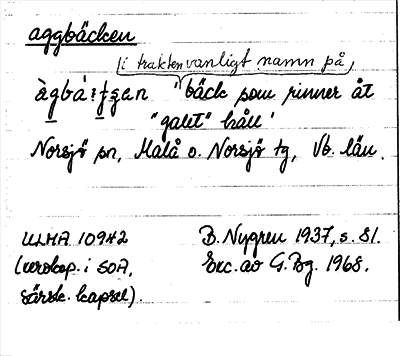 aggbäcken
(i trakten vanligt namn på)
àgbá:tʃan 'bäck som rinner åt
"galet" håll'
Norsjö sn, Malå o. Norsjö tg, Vb. län.
ULMA 10942 B. Nygren 1937, s. 81.
(verokap. i SOA, Exc. av G. Bg. 1968.
särsk. kapsel).